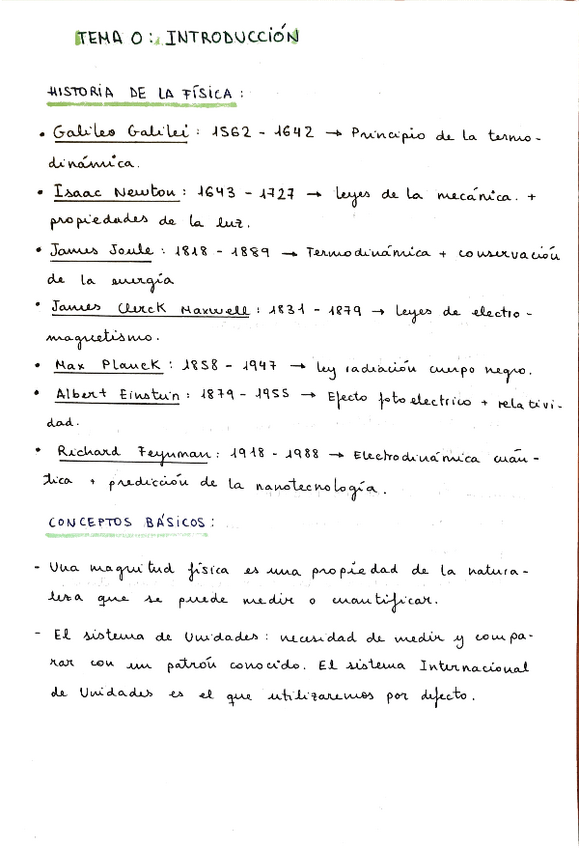 TEMA 0: INTRODUCCIÓN
HISTORIA DE LA FÍSICA:
• Galileo Galilei: 1562 - 1642 → Principio de la termo-
dinámica.
• Isaac Newton: 1643 - 1727 → leyes de la mecánica. +
propiedades de la luz.
• James Joule: 1818 - 1889 → Termodinámica + conservación
de la energía
• James Clerck Maxwell: 1831 - 1879 → leyes de electro-
magnetismo.
• Max Planck: 1858 - 1947 → ley radiación cuerpo negro.
• Albert Einstein: 1879 - 1955 → Efecto fotoelectrico + relativi-
dad.
• Richard Feynman: 1918 - 1988 → Electrodinámica cuán-
tica + predicción de la nanotecnología.
CONCEPTOS BÁSICOS:
- Una magnitud física es una propiedad de la natura-
leza que se puede medir o cuantificar.
- El sistema de Unidades: necesidad de medir y compa-
rar con un patrón conocido. El sistema Internacional
de Unidades es el que utilizaremos por defecto.